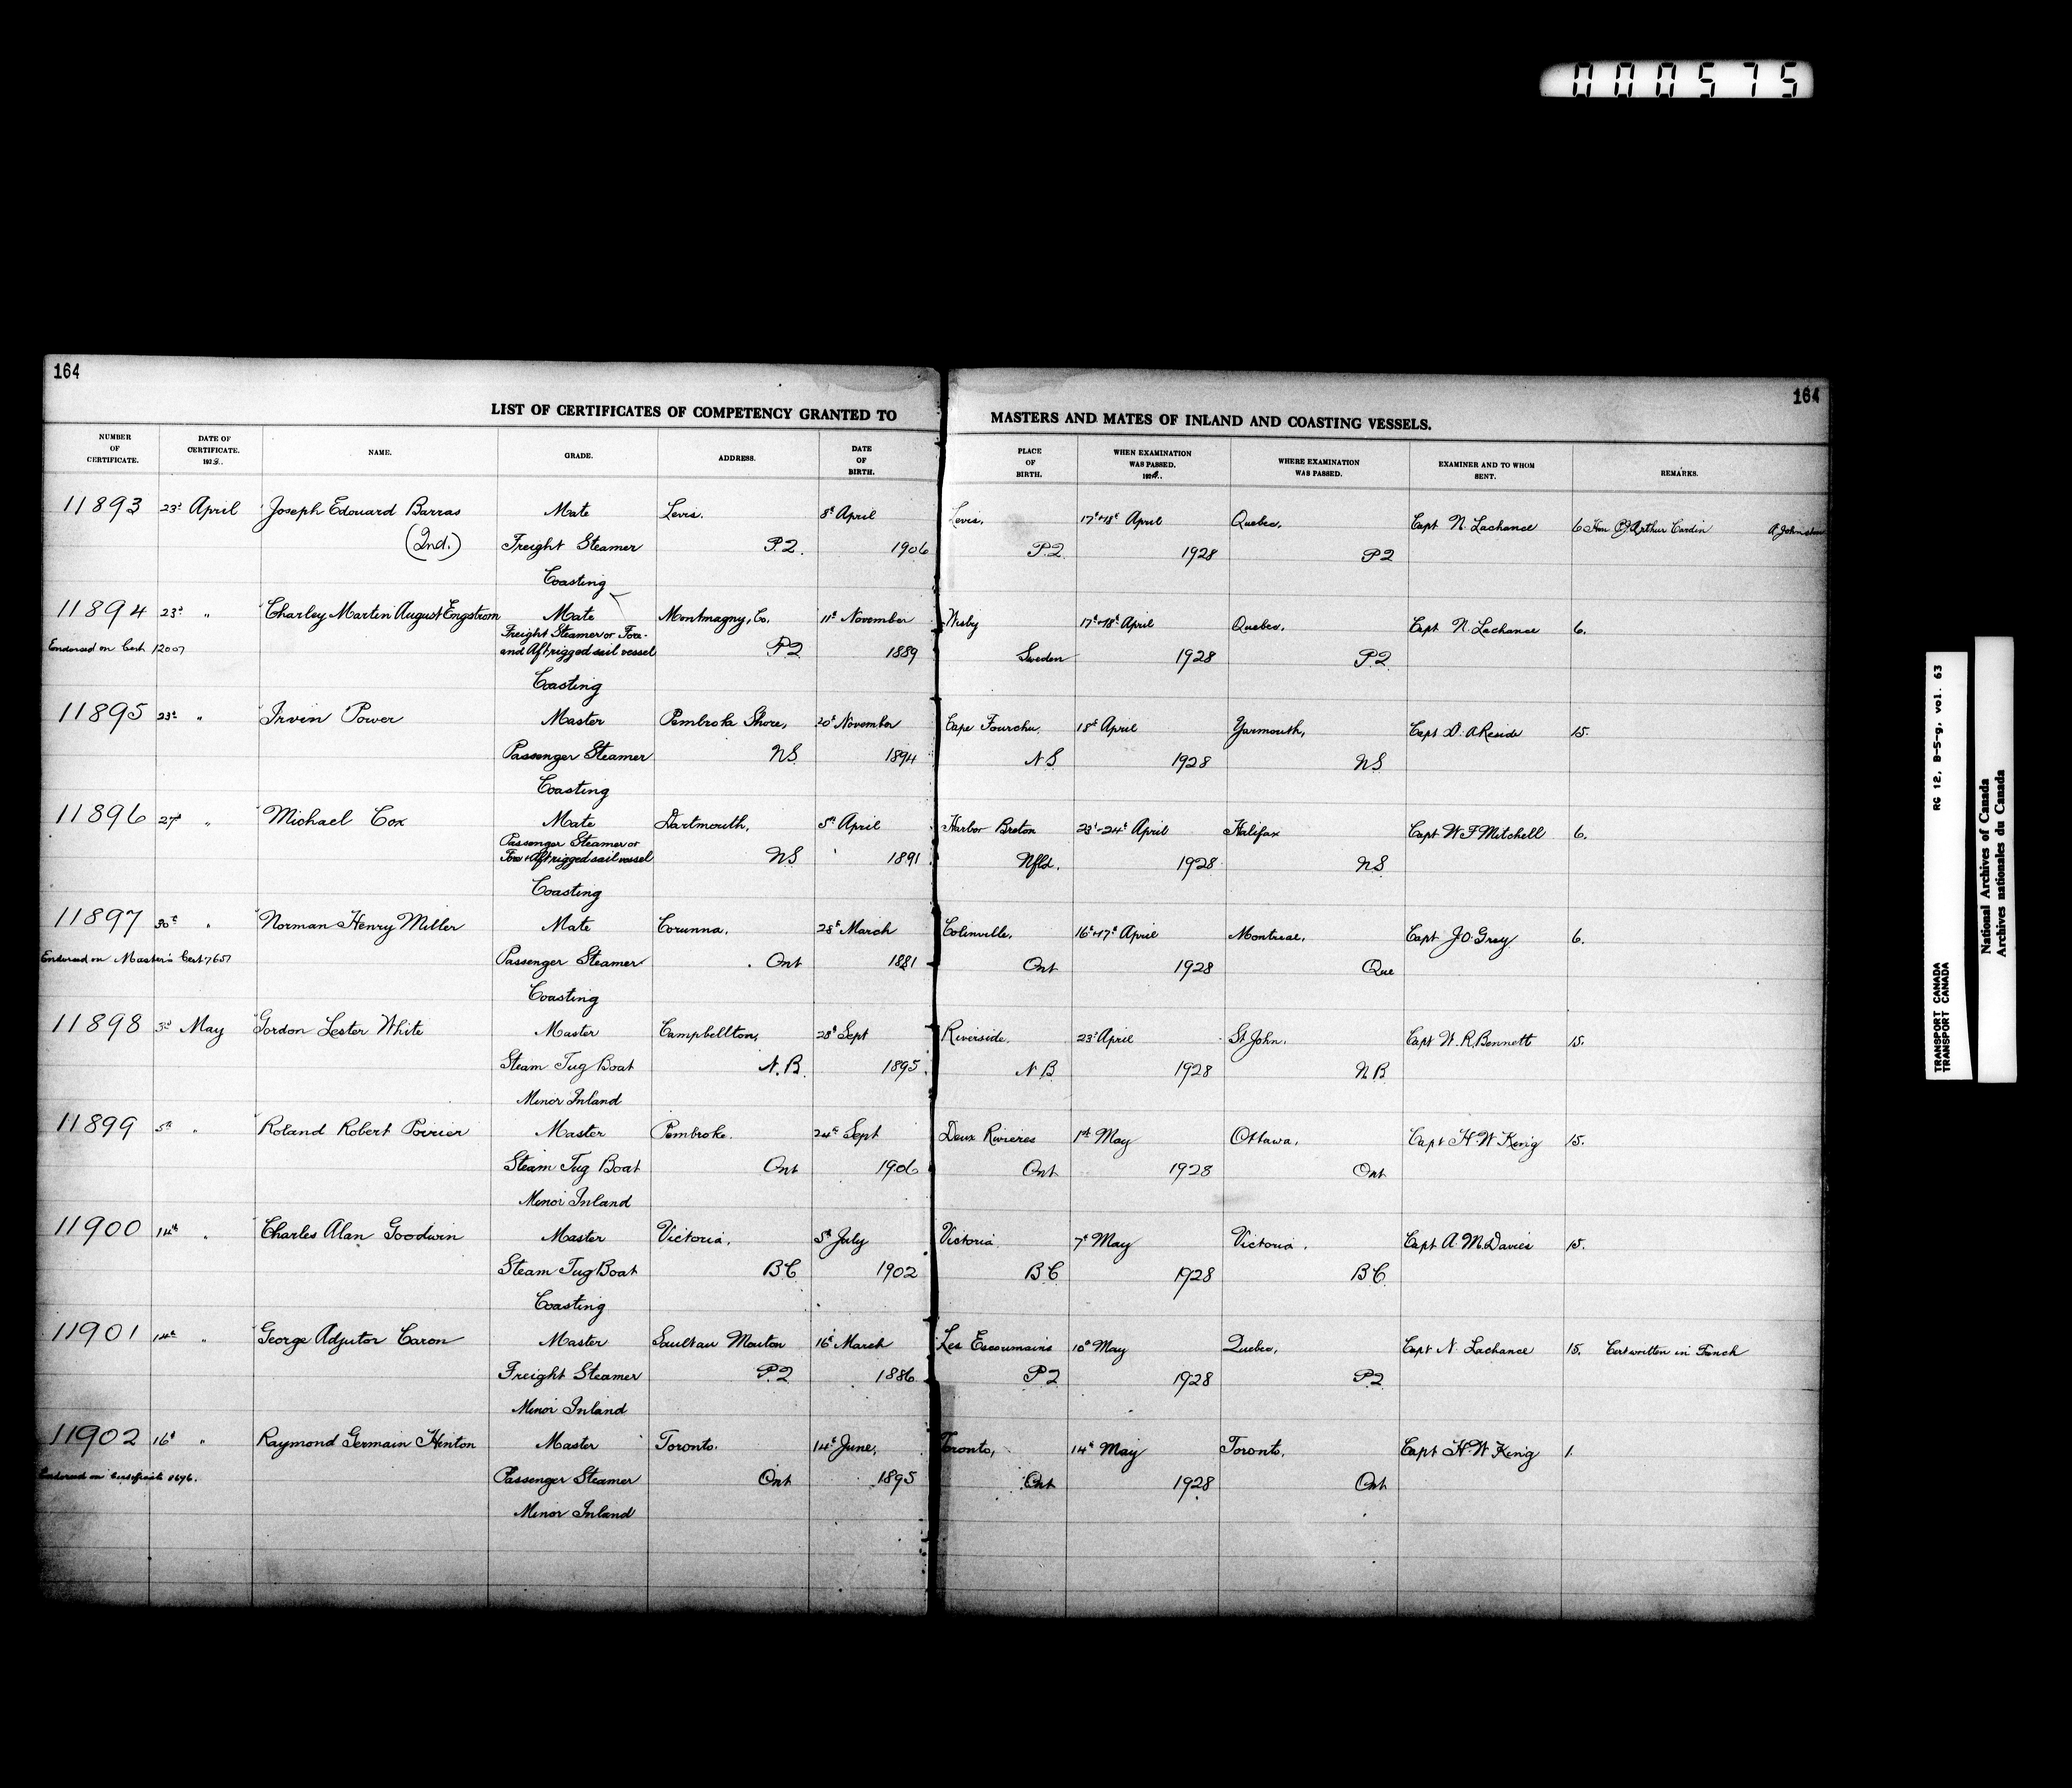 000575
164
164
LIST OF CERTIFICATES OF COMPETENCY GRANTED TO MASTERS AND MATES OF INLAND AND COASTING VESSELS.
NUMBER OF CERTIFICATE. DATE OF CERTIFICATE. 1928. NAME. GRADE. ADDRESS. DATE OF BIRTH. PLACE OF BIRTH. WHEN EXAMINATION WAS PASSED. 1928. WHERE EXAMINATION WAS PASSED. EXAMINER AND TO WHOM SENT. REMARKS.
11893 23d April Joseph Edouard Barras Mate Levis. 8th April Levis, 17th & 18th April Quebec, Capt N. Lachance 6 Hon P.J. Arthur Cardin A. Johnston
(2nd.) Freight Steamer P.Q. 1906 P.Q. 1928 P.Q
Coasting
11894 23d " Charley Martin August Engstrom Mate Montmagny, Co. 11th November Wisby 17th & 18th April Quebec, Capt N. Lachance 6.
Endorsed on Cert 12007 Freight Steamer or Fore- and Aft rigged sail vessel P.Q 1889 Sweden 1928 P.Q.
Coasting
11895 23d " Irvin Power Master Pembroke Shore, 20th November Cape Fourchu, 18th April Yarmouth, Capt D. A Reside 15.
Passenger Steamer NS. 1894 NS 1928 NS
Coasting
11896 27th " Michael Cox Mate Dartmouth, 5th April Harbor Breton 23d-24th April Halifax Capt W F Mitchell 6.
Passenger Steamer or Fore & Aft rigged sail vessel NS 1891 Nfld. 1928 NS
Coasting
11897 30th " Norman Henry Miller Mate Corunna, 28th March Colinville, 16th & 17th April Montreal, Capt J.O. Grey 6.
Endorsed on Master's Cert 7657 Passenger Steamer Ont 1881 Ont 1928 Que
Coasting
11898 3rd May Gordon Lester White Master Campbellton, 28th Sept Riverside, 23d April St John, Capt W. R. Bennett 15.
Steam Tug Boat N.B. 1895. N B 1928 N B
Minor Inland
11899 5th " Roland Robert Poirier Master Pembroke. 24th Sept Deux Rivieres 1st May Ottawa, Capt H. W King 15.
Steam Tug Boat Ont 1906 Ont 1928 Ont
Minor Inland
11900 14th " Charles Alan Goodwin Master Victoria, 5th July Victoria 7th May Victoria, Capt A. M. Davies 15.
Steam Tug Boat B C 1902 B C 1928 B C.
Coasting
11901 14th " George Adjutor Caron Master Sault au Mouton 16th March Les Escoumains 10th May Quebec, Capt N. Lachance 15. Cert written in French
Freight Steamer P.Q 1886 P Q 1928 P Q
Minor Inland
11902 16th " Raymond Germain Hinton Master Toronto. 14th June, Toronto, 14th May Toronto, Capt H W King 1.
Endorsed on Certificate Passenger Steamer Ont 1895 Ont 1928 Ont
Minor Inland
TRANSPORT CANADA RG 12, B-5-g, vol. 63
TRANSPORT CANADA
National Archives of Canada
Archives nationales du Canada